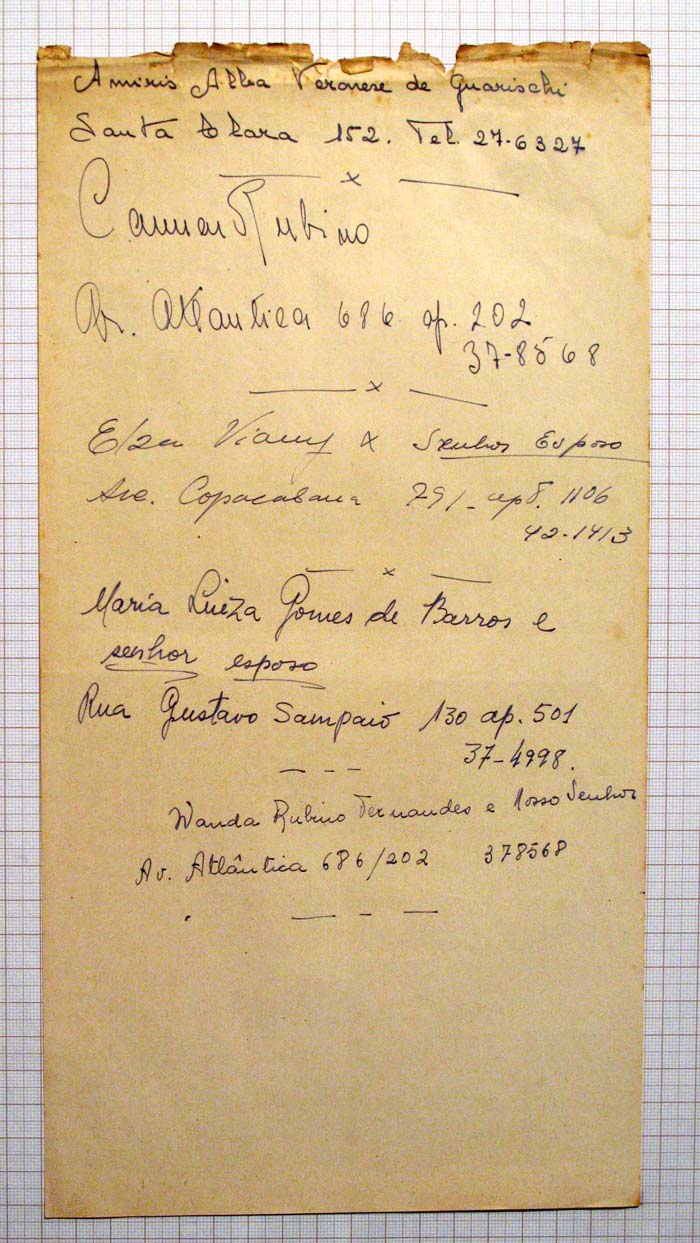 Amiris Alba Veronese de Guarischi
Santa Clara 152. Tel. 27-6327
x
Carmen Rubino
Av. Atlantica 686 ap. 202
37-8568
x
Elza Viany x Senhor Esposo
Ave. Copacabana 791- apt. 1106
42-1413
x
Maria Luiza Gomes de Barros e
senhor esposo
Rua Gustavo Sampaio 130 ap. 501
37-4998.
Wanda Rubino Fernandes e Nosso Senhor
Av. Atlântica 686/202 378568